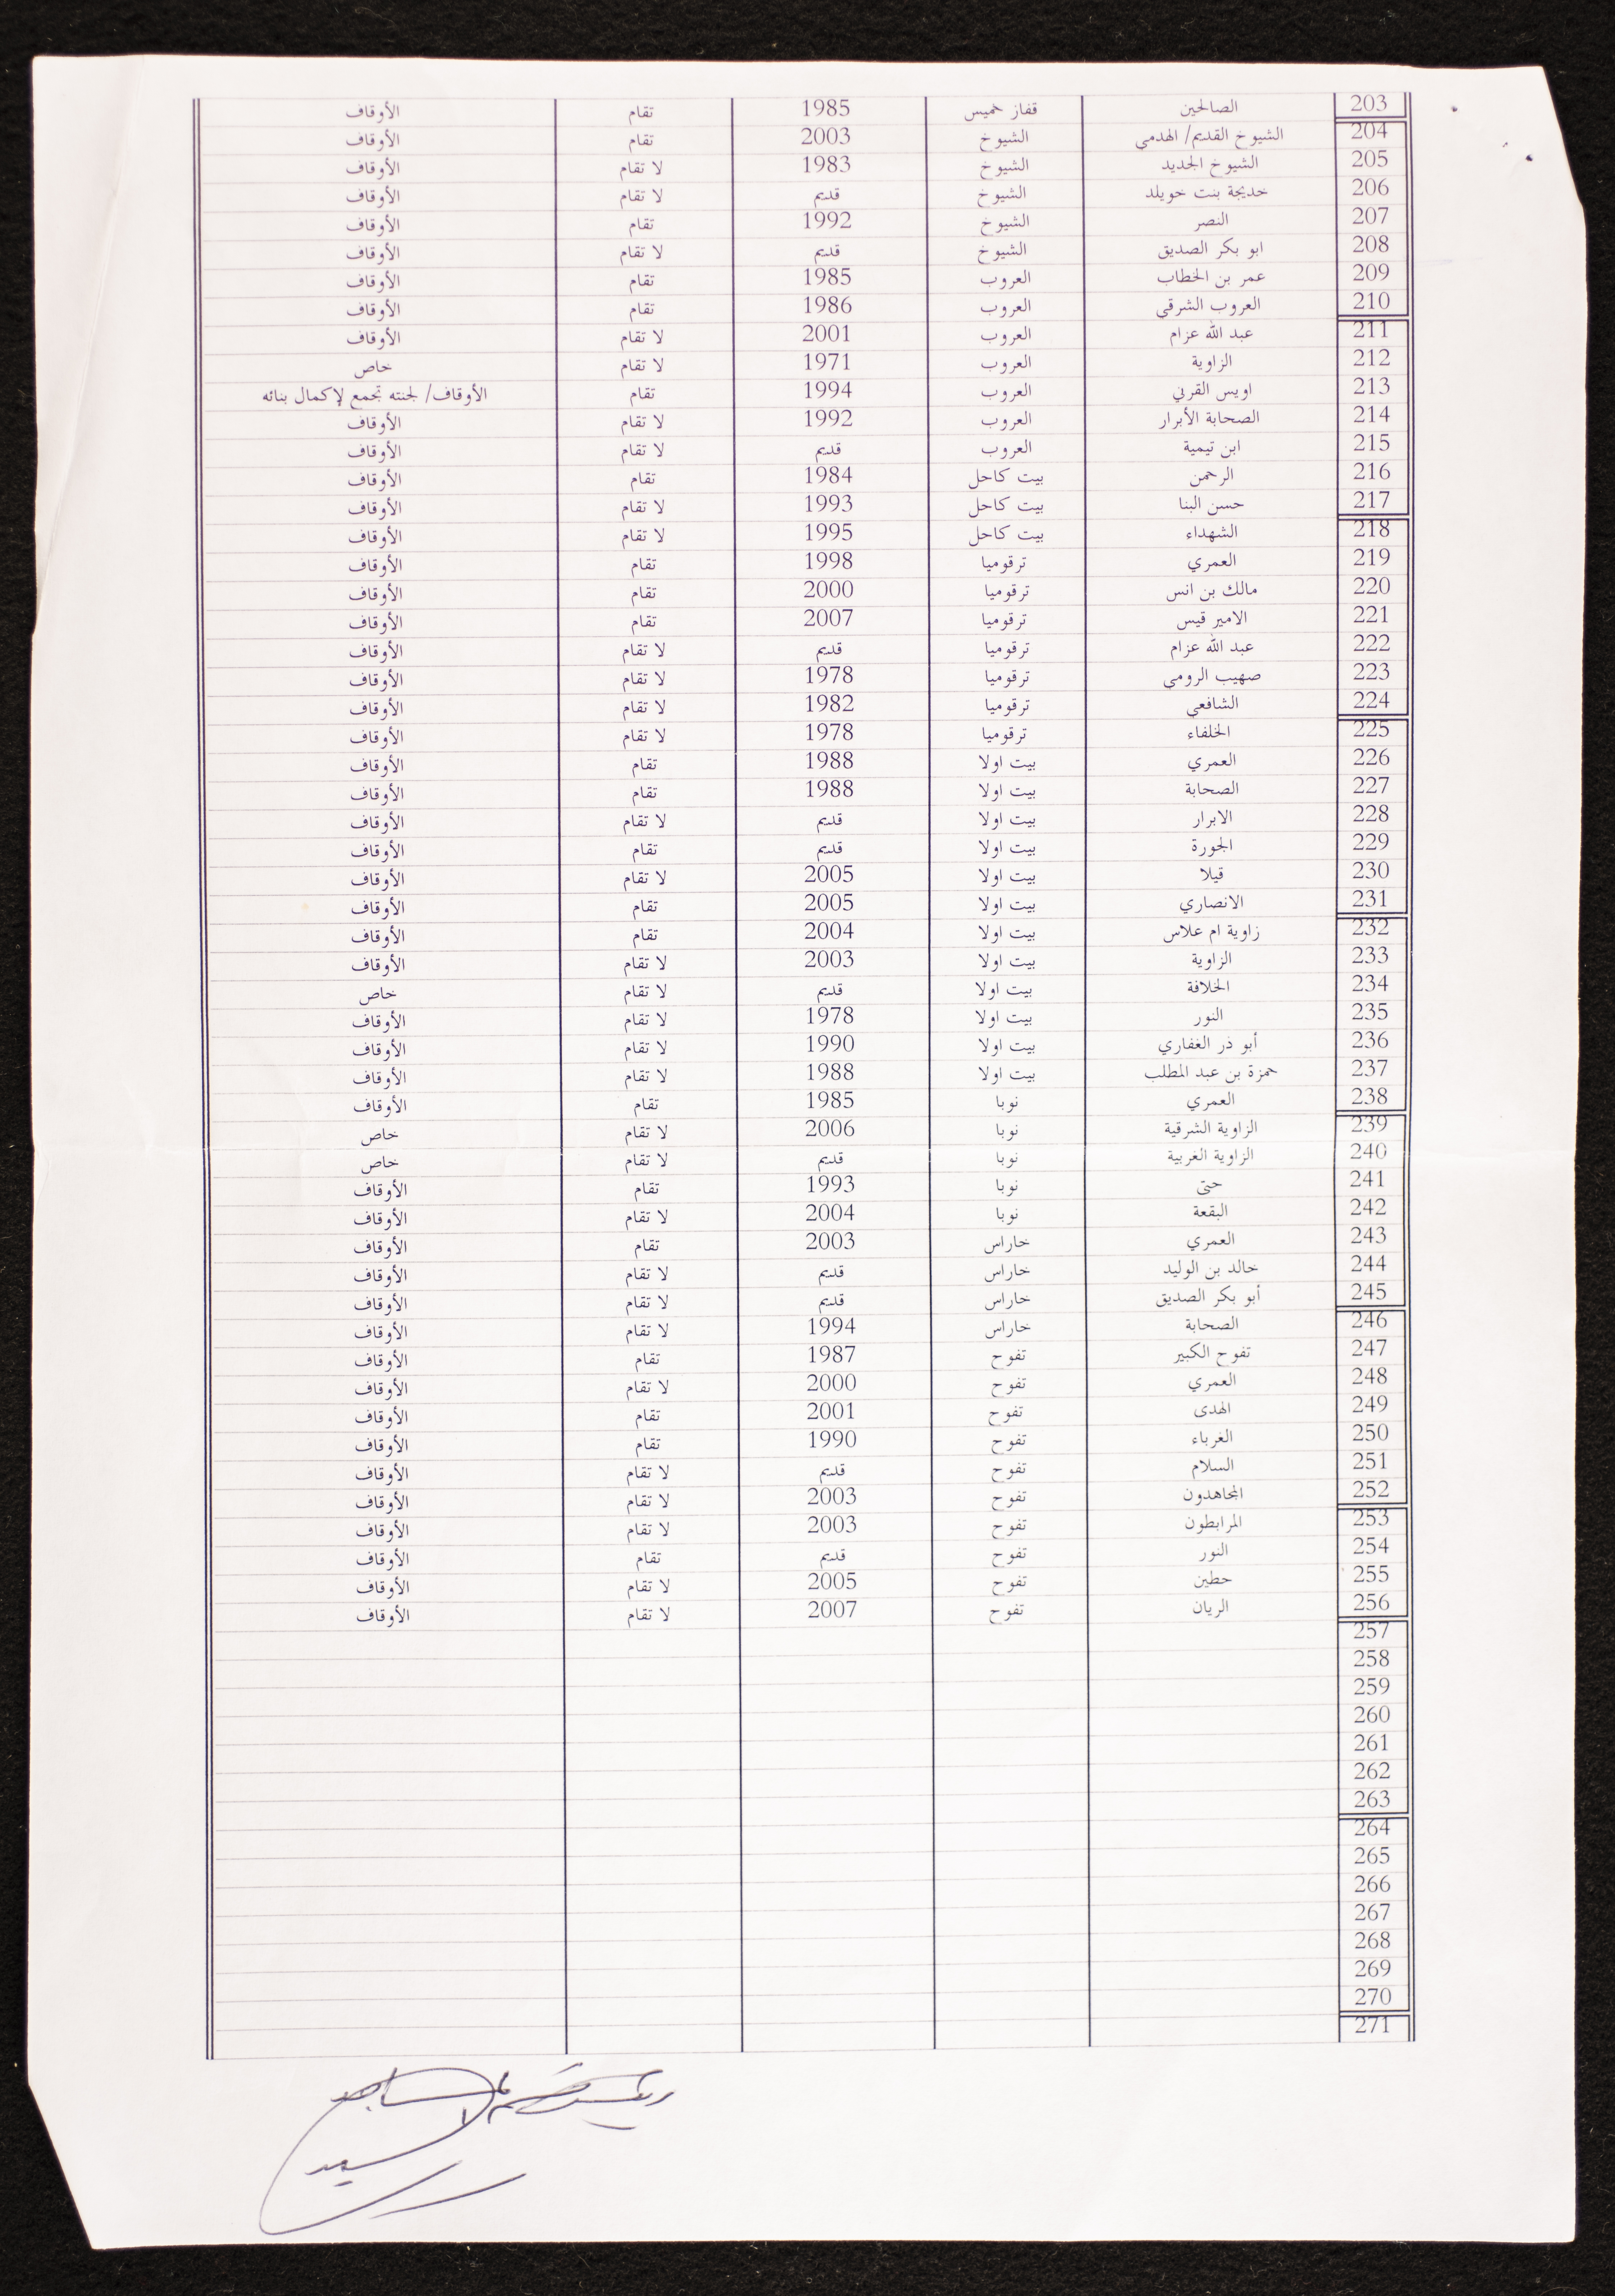 203 الصالحين قفاز خميس 1985 تقام الأوقاف
204 الشيوخ القديم/ الهدمي الشيوخ 2003 تقام الأوقاف
205 الشيوخ الجديد الشيوخ 1983 لا تقام الأوقاف
206 خديجة بنت خويلد الشيوخ قديم لا تقام الأوقاف
207 النصر الشيوخ 1992 تقام الأوقاف
208 ابو بكر الصديق الشيوخ قديم لا تقام الأوقاف
209 عمر بن الخطاب العروب 1985 تقام الأوقاف
210 العروب الشرقي العروب 1986 تقام الأوقاف
211 عبد الله عزام العروب 2001 لا تقام الأوقاف
212 الزاوية العروب 1971 لا تقام خاص
213 اويس القرني العروب 1994 تقام الأوقاف/ لجنته تجمع لإكمال بنائه
214 الصحابة الأبرار العروب 1992 لا تقام الأوقاف
215 ابن تيمية العروب قديم لا تقام الأوقاف
216 الرحمن بيت كاحل 1984 تقام الأوقاف
217 حسن البنا بيت كاحل 1993 لا تقام الأوقاف
218 الشهداء بيت كاحل 1995 لا تقام الأوقاف
219 العمري ترقوميا 1998 تقام الأوقاف
220 مالك بن انس ترقوميا 2000 تقام الأوقاف
221 الامير قيس ترقوميا 2007 تقام الأوقاف
222 عبد الله عزام ترقوميا قديم لا تقام الأوقاف
223 صهيب الرومي ترقوميا 1978 لا تقام الأوقاف
224 الشافعي ترقوميا 1982 لا تقام الأوقاف
225 الخلفاء ترقوميا 1978 لا تقام الأوقاف
226 العمري بيت اولا 1988 تقام الأوقاف
227 الصحابة بيت اولا 1988 تقام الأوقاف
228 الابرار بيت اولا قديم لا تقام الأوقاف
229 الجورة بيت اولا قديم تقام الأوقاف
230 قيلا بيت اولا 2005 لا تقام الأوقاف
231 الانصاري بيت اولا 2005 تقام الأوقاف
232 زاوية ام علاس بيت اولا 2004 تقام الأوقاف
233 الزاوية بيت اولا 2003 لا تقام الأوقاف
234 الخلافة بيت اولا قديم لا تقام خاص
235 النور بيت اولا 1978 لا تقام الأوقاف
236 أبو ذر الغفاري بيت اولا 1990 لا تقام الأوقاف
237 حمزة بن عبد المطلب بيت اولا 1988 لا تقام الأوقاف
238 العمري نوبا 1985 تقام الأوقاف
239 الزاوية الشرقية نوبا 2006 لا تقام خاص
240 الزاوية الغربية نوبا قديم لا تقام خاص
241 حتى نوبا 1993 تقام الأوقاف
242 البقعة نوبا 2004 لا تقام الأوقاف
243 العمري خاراس 2003 تقام الأوقاف
244 خالد بن الوليد خاراس قديم لا تقام الأوقاف
245 أبو بكر الصديق خاراس قديم لا تقام الأوقاف
246 الصحابة خاراس 1994 لا تقام الأوقاف
247 تفوح الكبير تفوح 1987 تقام الأوقاف
248 العمري تفوح 2000 لا تقام الأوقاف
249 الهدى تفوح 2001 تقام الأوقاف
250 الغرباء تفوح 1990 تقام الأوقاف
251 السلام تفوح قديم لا تقام الأوقاف
252 المجاهدون تفوح 2003 لا تقام الأوقاف
253 المرابطون تفوح 2003 لا تقام الأوقاف
254 النور تفوح قديم تقام الأوقاف
255 حطين تفوح 2005 لا تقام الأوقاف
256 الريان تفوح 2007 لا تقام الأوقاف
257
258
259
260
261
262
263
264
265
266
267
268
269
270
271
رئيس قسم المساجد